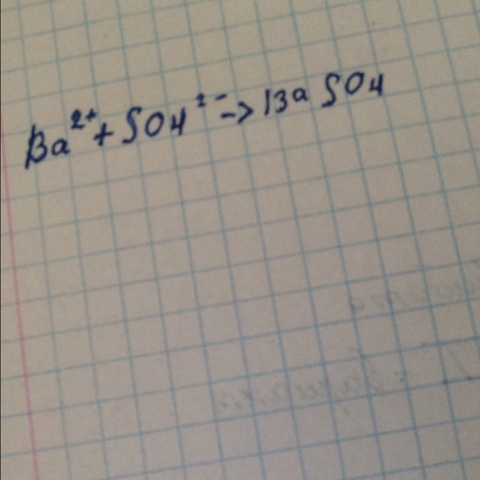 Ba²⁺ + SO4²⁻ -> Ba SO4